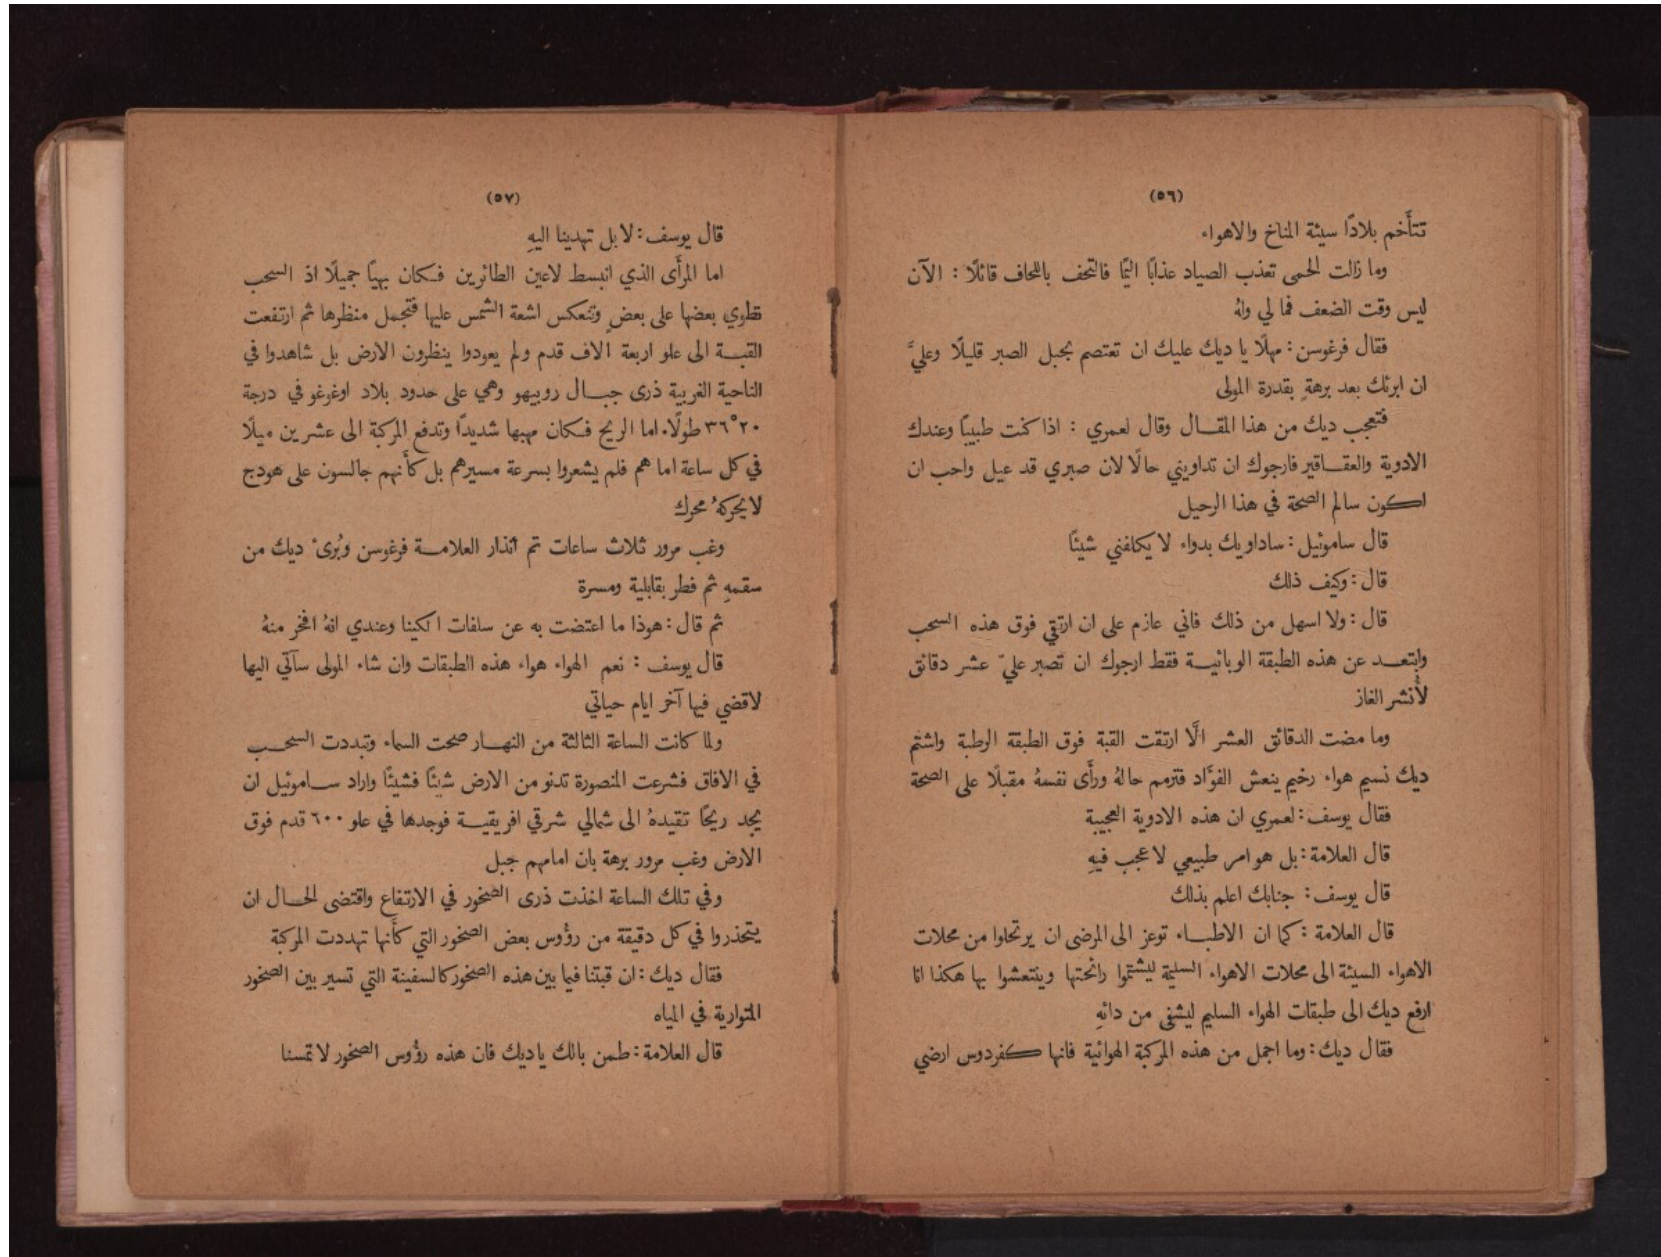 (٥٦)
تتأَخم بلادًا سيئة المناخ والاهواء
وما زالت الحمى تعذب الصياد عذابًا اليمًا فالتحف باللحاف قائلًا : الآن
ليس وقت الضعف فما لي ولهُ
فقال فرغوسن : مهلًا يا ديك عليك ان تعتصم بحبل الصبر قليلًا وعليَّ
ان ابرئك بعد برهةٍ بقدرة المولى
فتعجب ديك من هذا المقال وقال لعمري : اذا كنت طبيبًا وعندك
الادوية والعقاقير فارجوك ان تداويني حالًا لان صبري قد عيل واحب ان
اكون سالم الصحة في هذا الرحيل
قال ساموئيل : ساداويك بدواء لا يكلفني شيئًا
قال : وكيف ذلك
قال : ولا اسهل من ذلك فاني عازم على ان ارتقي فوق هذه السحب
وابتعد عن هذه الطبقة الوبائية فقط ارجوك ان تصبر عليّ عشر دقائق
لأَنشر الغاز
وما مضت الدقائق العشر الَّا ارتقت القبة فوق الطبقة الرطبة واشتم
ديك نسيم هواء رخيم ينعش الفؤَاد فترمم حالهُ ورأَى نفسهُ مقبلًا على الصحة
فقال يوسف : لعمري ان هذه الادوية العجيبة
قال العلامة : بل هو امر طبيعي لا عجب فيهِ
قال يوسف : جنابك اعلم بذلك
قال العلامة : كما ان الاطباء توعز الى المرضى ان يرتحلوا من محلات
الاهواء السيئة الى محلات الاهواء السليمة ليشتموا رائحتها وينتعشوا بها هكذا انا
ارفع ديك الى طبقات الهواء السليم ليشفى من دائهِ
فقال ديك : وما اجمل من هذه المركبة الهوائية فانها كفردوس ارضي
(٥٧)
قال يوسف : لا بل تهدينا اليهِ
اما المرأَى الذي انبسط لاعين الطائرين فكان بهيًا جميلًا اذ السحب
تطوي بعضها على بعضٍ وتنعكس اشعة الشمس عليها فتجمل منظرها ثم ارتفعت
القبة الى علو اربعة الاف قدم ولم يعودوا ينظرون الارض بل شاهدوا في
الناحية الغربية ذرى جبال روبيهو وهي على حدود بلاد اوغوغو في درجة
٣٦°٢٠ طولًا. اما الريح فكان مهبها شديدًا وتدفع المركبة الى عشرين ميلًا
في كل ساعة اما هم فلم يشعروا بسرعة مسيرهم بل كأَنهم جالسون على هودج
لا يحركهُ محرك
وغب مرور ثلاث ساعات تم انذار العلامة فرغوسن وبُرئ ديك من
سقمهِ ثم فطر بقابلية ومسرة
ثم قال : هوذا ما اعتضت به عن سلفات الكينا وعندي انهُ افخر منهُ
قال يوسف : نعم الهواء هواء هذه الطبقات وان شاء المولى سآتي اليها
لاقضي فيها آخر ايام حياتي
ولما كانت الساعة الثالثة من النهار صحت السماء وتبددت السحب
في الافاق فشرعت المنصورة تدنو من الارض شيئًا فشيئًا واراد ساموئيل ان
يجد ريحًا تقيدهُ الى شمالي شرقي افريقية فوجدها في علو ٦٠٠ قدم فوق
الارض وغب مرور برهة بان امامهم جبل
وفي تلك الساعة اخذت ذرى الصخور في الارتفاع واقتضى الحال ان
يتحذروا في كل دقيقة من رؤوس بعض الصخور التي كأَنها تهددت المركبة
فقال ديك : ان قبتنا فيما بين هذه الصخور كالسفينة التي تسير بين الصخور
المتوارية في المياه
قال العلامة : طمن بالك يا ديك فان هذه رؤوس الصخور لا تمسنا